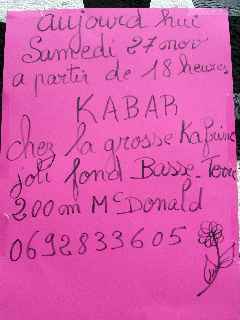 aujourd'hui
Samedi 27 nov
a partir de 18 heures
KABAR
chez la grosse Kafrine
joli fond Basse-Terre
200 m McDonald
0692833605